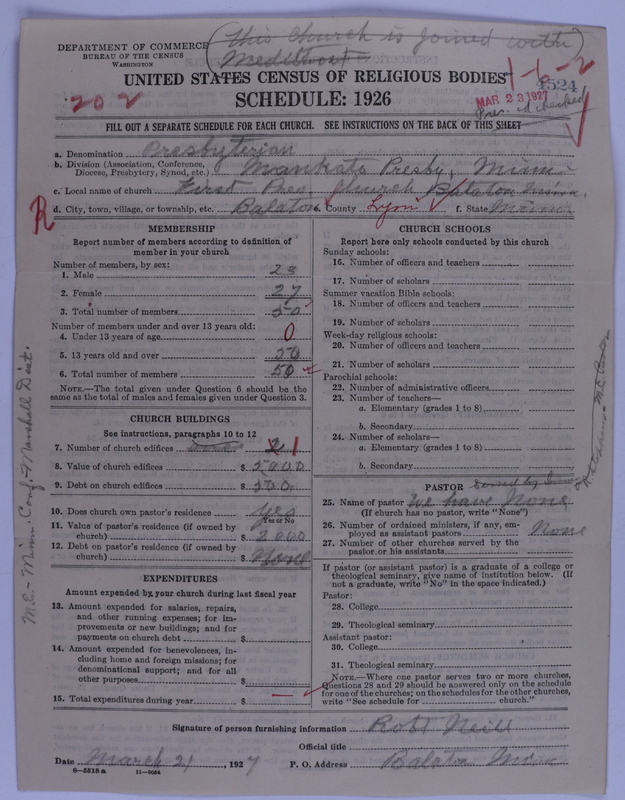 (This church is joined with)
Methdtst
DEPARTMENT OF COMMERCE
BUREAU OF THE CENSUS
WASHINGTON
UNITED STATES CENSUS OF RELIGIOUS BODIES
1-1-2
4524
202
SCHEDULE: 1926
MAR 23 1927
Pres. id checked
FILL OUT A SEPARATE SCHEDULE FOR EACH CHURCH. SEE INSTRUCTIONS ON THE BACK OF THIS SHEET
a. Denomination Presbyterian
b. Division (Association, Conference, Diocese, Presbytery, Synod, etc.) Mankato Presby, Minn
c. Local name of church First Pres. Church Balaton Minn.
R
d. City, town, village, or township, etc. Balaton e. County Lyon f. State Minn.
MEMBERSHIP
Report number of members according to definition of
member in your church
Number of members, by sex:
1. Male 23
2. Female 27
3. Total number of members 50
Number of members under and over 13 years old:
4. Under 13 years of age 0
5. 13 years old and over 50
6. Total number of members 50
NOTE.—The total given under Question 6 should be
same as the total of males and females given under Question 3.
CHURCH BUILDINGS
See instructions, paragraphs 10 to 12
7. Number of church edifices 2 1
8. Value of church edifices $ 5000
9. Debt on church edifices $ 300
10. Does church own pastor's residence? Yes
Yes or No
11. Value of pastor's residence (if owned by
church) $ 2000
12. Debt on pastor's residence (if owned by
church) $ None
EXPENDITURES
Amount expended by your church during last fiscal year
13. Amount expended for salaries, repairs,
and other running expenses; for im-
provements or new buildings; and for
payments on church debt $
14. Amount expended for benevolences, in-
cluding home and foreign missions; for
denominational support; and for all
other purposes $
15. Total expenditures during year $ —
CHURCH SCHOOLS
Report here only schools conducted by this church
Sunday schools:
16. Number of officers and teachers
17. Number of scholars
Summer vacation Bible schools:
18. Number of officers and teachers
19. Number of scholars
Week-day religious schools:
20. Number of officers and teachers
21. Number of scholars
Parochial schools:
22. Number of administrative officers
23. Number of teachers—
a. Elementary (grades 1 to 8)
b. Secondary
24. Number of scholars—
a. Elementary (grades 1 to 8)
b. Secondary
PASTOR Served by
25. Name of pastor We have None
(If church has no pastor, write "None")
26. Number of ordained ministers, if any, em-
ployed as assistant pastors None
27. Number of other churches served by the
pastor or his assistants
If pastor (or assistant pastor) is a graduate of a college or
theological seminary, give name of institution below. (If
not a graduate, write "No" in the space indicated.)
Pastor:
28. College
29. Theological seminary
Assistant pastor:
30. College
31. Theological seminary
NOTE.—Where one pastor serves two or more churches,
Questions 28 and 29 should be answered only on the schedule
for one of the churches; on the schedules for the other churches,
write "See schedule for church."
M.E. - Minn. Conf. - Marshall Dist.
M.E. Pastor
Signature of person furnishing information Robt Neill
Official title
Date March 21, 1927 P. O. Address Balaton Minn
8—5518a 11—9054